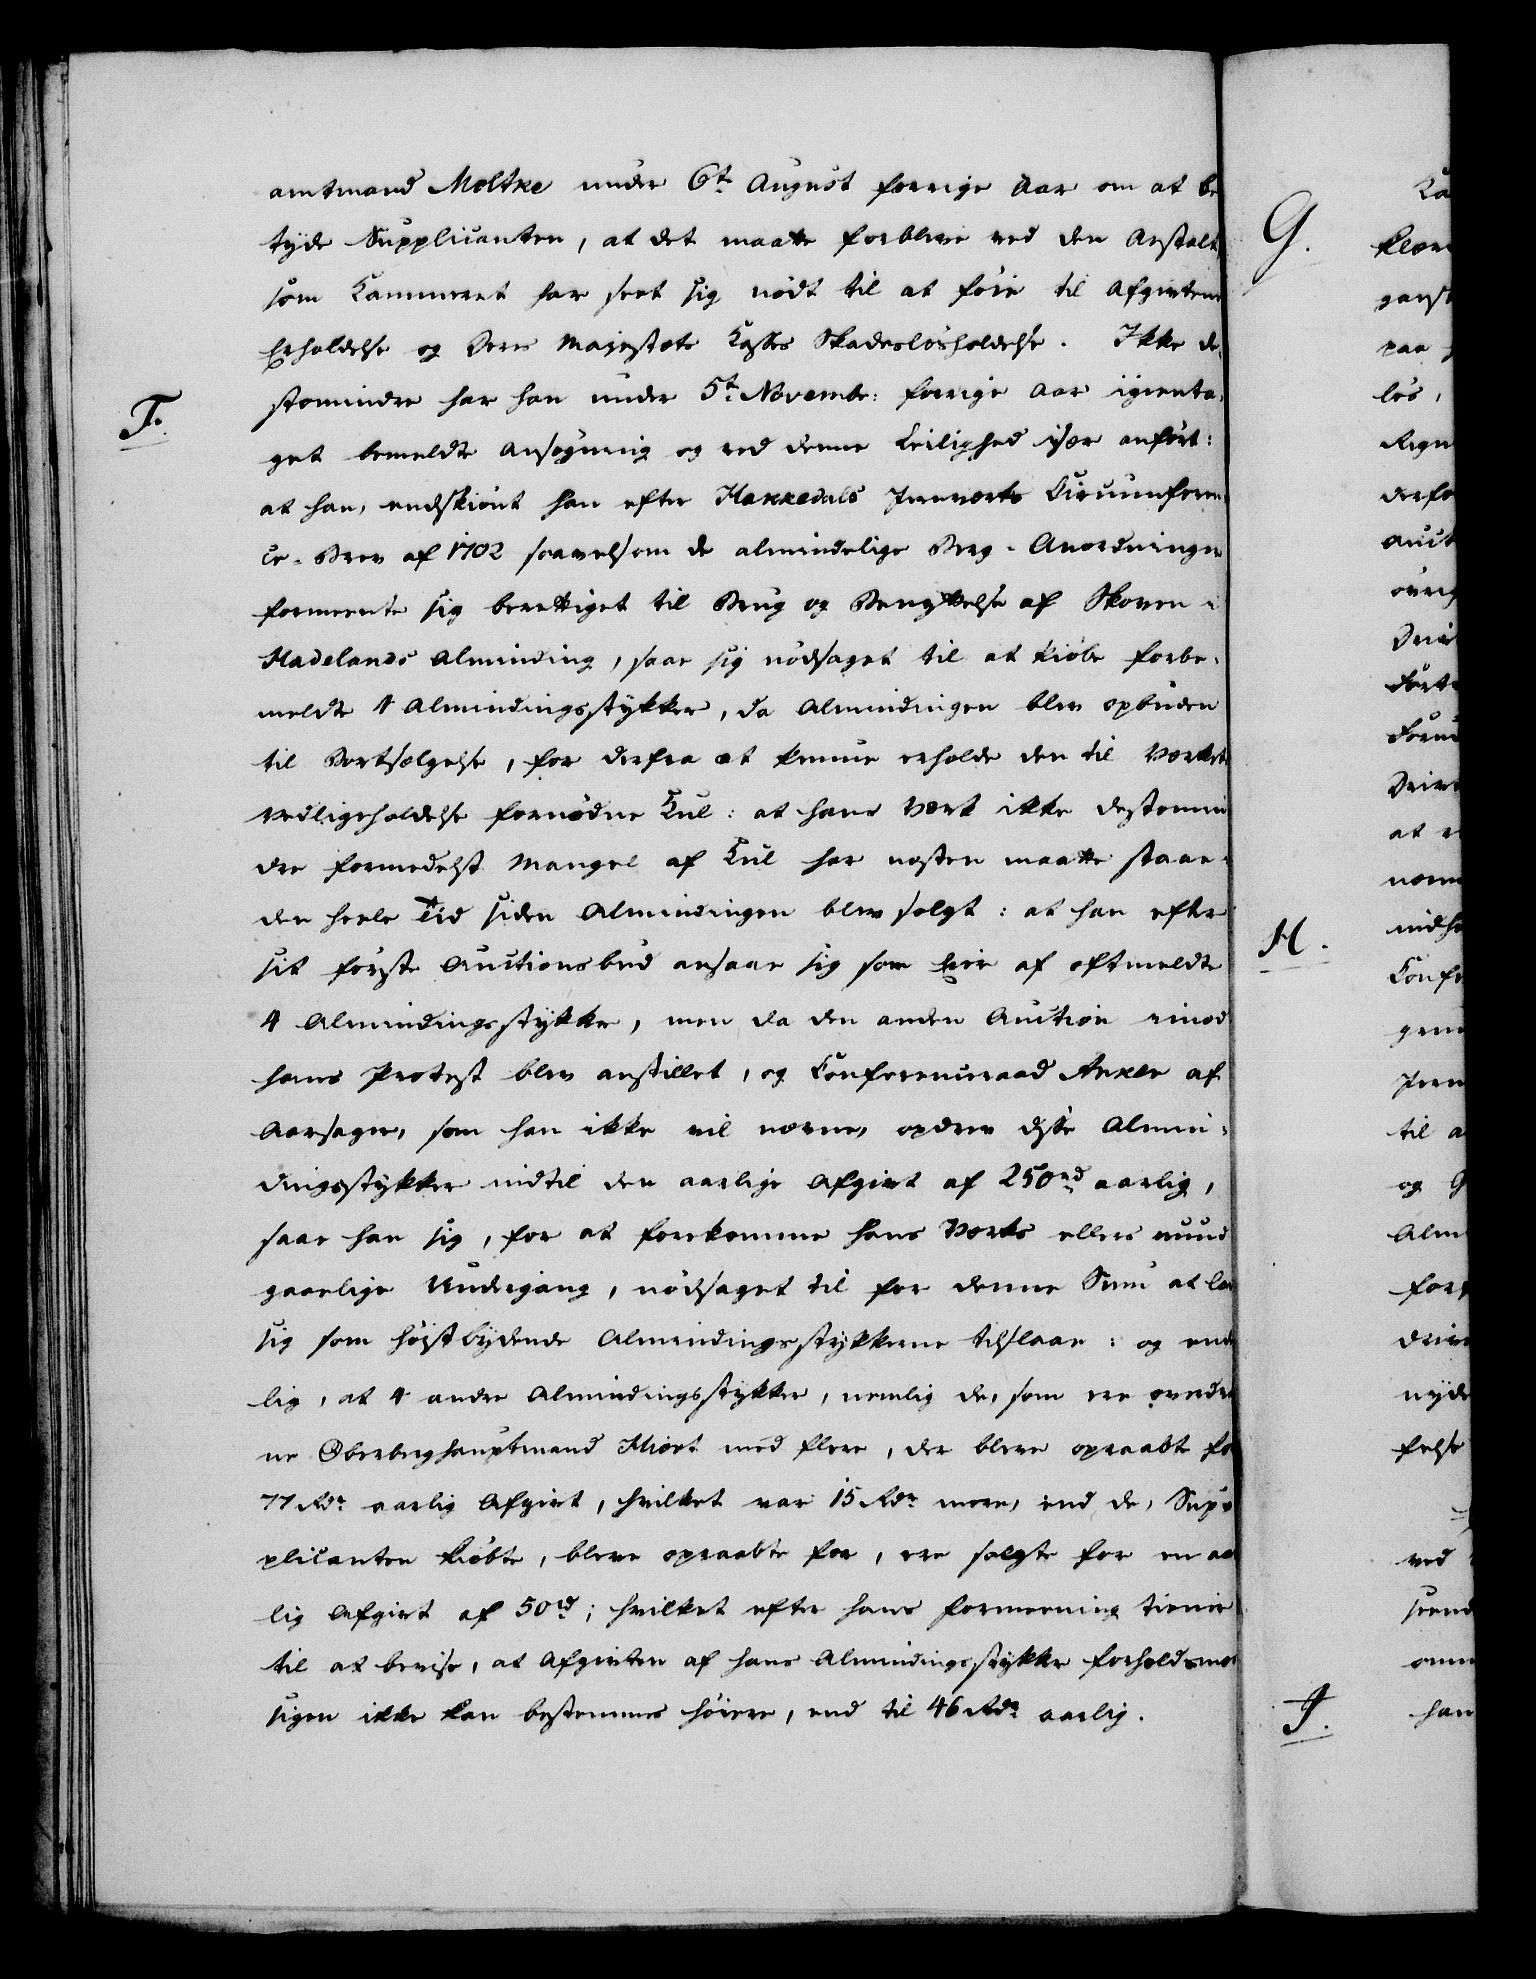 amtmand Moltke under 6t August forrige Aar om at be
tyde Supplicanten, at det maatte forblive ved den Anstalt,
som Kammeret har seet sig nödt til at föie til Afgivtens
Erholdelse og Deres Majestæts Kasses Skadeslösholdelse. Ikke de-
F. stomindre har han under 5t Novembr: forrige Aar igienta-
get bemeldte Ansögning og ved denne Leilighed især anfört:
at han, endskiönt han efter Hakkedals Jernverks Circumferen-
ce-Brev af 1702 saavelsom de almindelige Berg-Anordninger
formeente sig berettiget til Brug og Benyttelse af Skoven i
Hadelands Alminding, saae sig nödsaget til at kiöbe forbe-
meldte 4 Almindingsstykker, da Almindingen blev opbuden
til Bortsælgelse, for derfra at kunne erholde den til Værkets
Vedligeholdelse fornödne Kul: at hans Værk ikke destomin
dre formedelst Mangel af Kul har næsten maatte staae
den heele Tid siden Almindingen blev solgt: at han efter
sit förste Auctionsbud ansaae sig som Eier af oftmeldte
4 Almindingsstykker, men da den anden Auction imod
hans Protest blev anstillet, og Conferenceraad Anker af
Aarsager, som han ikke vil nævne, opdrev disse Almin-
dingsstykker indtil den aarlige Afgivt af 250rd aarlig,
saae han sig, for at forekomme hans Værks ellers uund
gaaelige Undergang, nödsaget til for denne Sum at lade
sig som höistbydende Almindingsstykkerne tilslaae: og ende
lig, at 4 andre Almindingsstykker, nemlig de, som ere overdrag
ne Oberberghauptmand Hiort med flere, der bleve opraabte for
77 Rdr aarlig Afgivt, hvilket var 15 Rdr mere, end de, Sup-
plicanten kiöbte, bleve opraabte for, ere solgte for en aar
lig Afgivt af 50rd; hvilket efter hans Formeening tiener
til at bevise, at Afgivten af hans Almindingsstykker forholdsmæs
sigen ikke kan bestemmes höiere, end til 46 Rdr aarlig.
G.
H.
J.